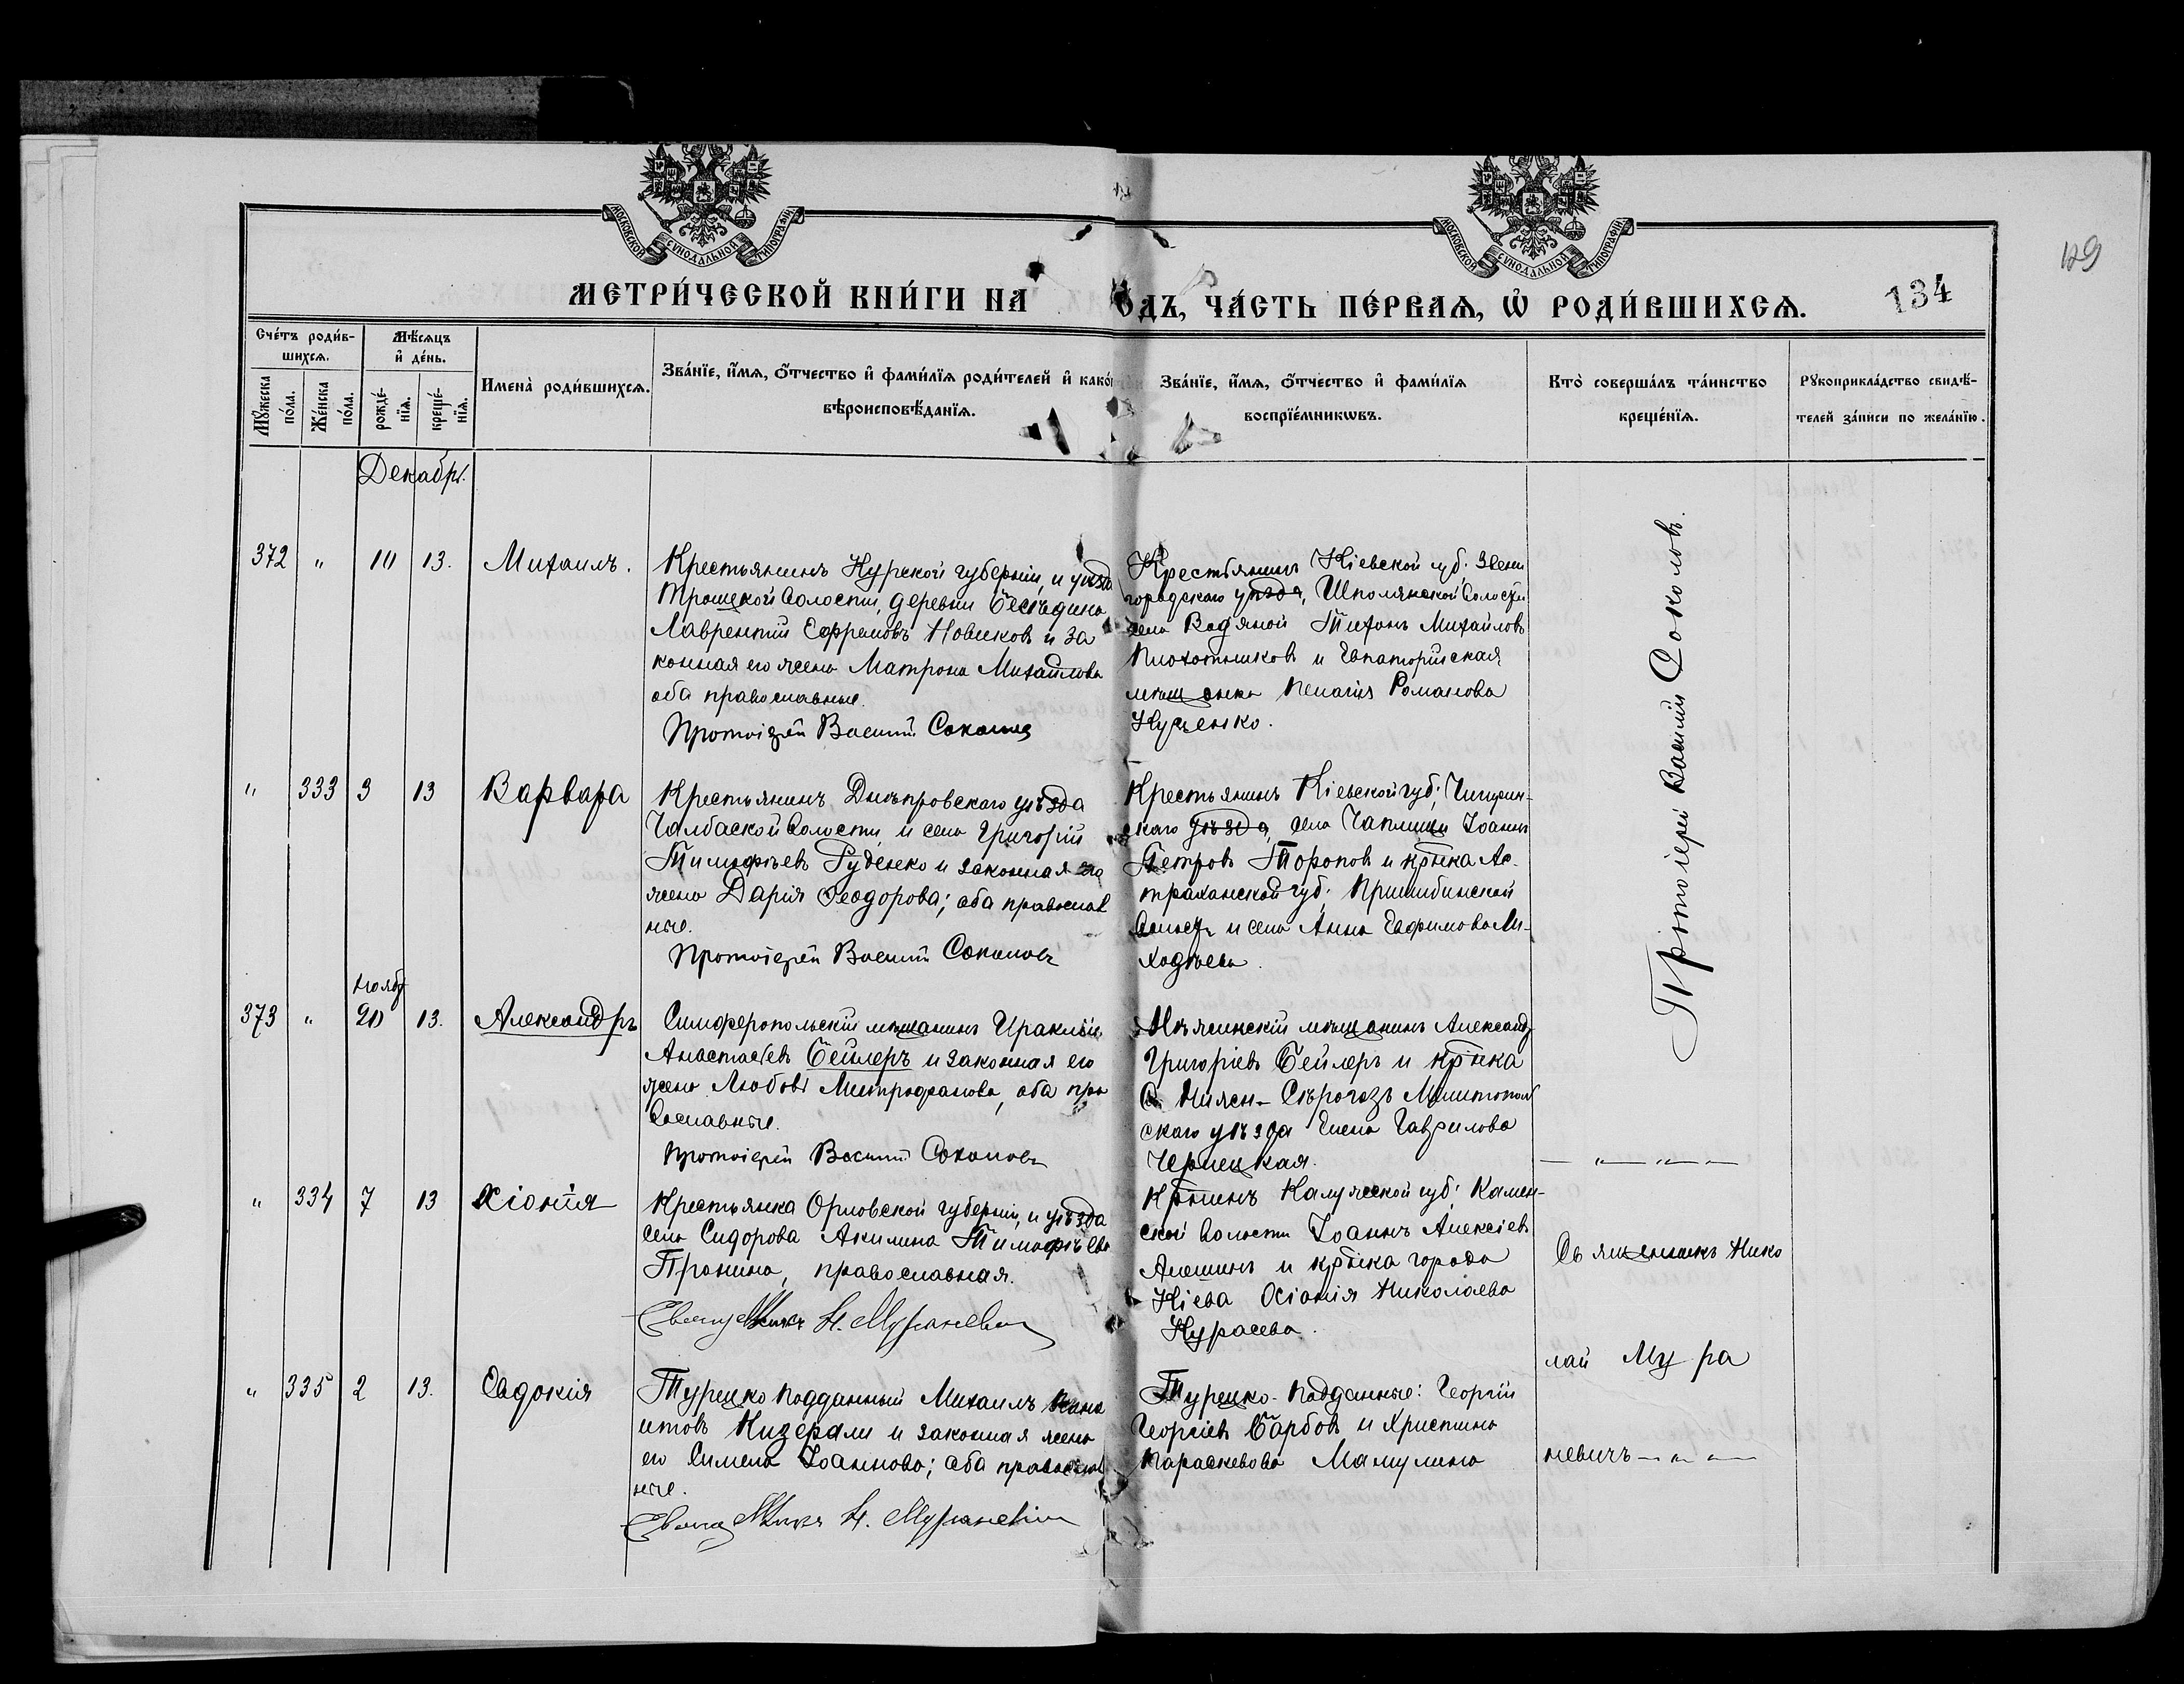 МОСКОВСКОЙ СѴНОДАЛЬНОЙ ТИПОГРАФІИ
МОСКОВСКОЙ СѴНОДАЛЬНОЙ ТИПОГРАФІИ
129
134
МЕТРИ́ЧЕСКОЙ КНИ́ГИ НА ОДЪ, ЧА́СТЬ ПЕ́РВАѦ, Ѡ҆ РОДИ́ВШИХСѦ.
Сче́тъ роди́в-
шихсѧ.
Мꙋ́жеска по́ла.
Же́нска по́ла.
Мѣ́сѧцъ
и҆ де́нь.
рожде́-
нїѧ.
креще́-
нїѧ.
Имена̀ роди́вшихсѧ.
Зва́нїе, и҆́мѧ, ѻ҆́тчество и҆ фами́лїѧ роди́телей и҆ како́
вѣроисповѣ́данїѧ.
Зва́нїе, и҆́мѧ, ѻ҆́тчество и҆ фами́лїѧ
воспрїе́мникѡвъ.
Кто̀ соверша́лъ та́инство
креще́нїѧ.
Рꙋкоприкла́дство свидѣ́-
телей за́писи по жела́нїю.
Декабрь.
372 " 10 13. Михаилъ.
Крестьянинъ Курской губерніи, и уѣзда
Троицкой волости, деревни Бесѣдина
Лаврентій Ефремовъ Новиковъ и за
конная его жена Матрона Михайлова
оба православные.
Протоіерей Василій Соколовъ
Крестьянинъ Кіевской губ. Звени
городскаго уѣзда, Шполянской волости
села Водяной Тихонъ Михайловъ
Плохотниковъ и Евпаторійская
мѣщанка Пелагія Романова
Куценко.
" 333 3 13 Варвара
Крестьянинъ Днѣпровскаго уѣзда
Чалбаской волости и села Григорій
Тимофѣевъ Руденко и законная его
жена Дарія Феодорова; оба православ
ные.
Протоіерей Василій Соколовъ
Крестьянинъ Кіевской губ. Чигирин-
скаго уѣзда, села Чаплищи Іоаннъ
Петровъ Торопов и кр̅нка Ас-
траханской губ. Пришибинской
волости и села Анна Евфимова Ли-
ходѣева.
Ноябр
373 " 20 13. Александръ
Симферопольскій мѣщанинъ Ираклій
Анастасіевъ Бейлеръ и законная его
жена Любовь Митрофанова, оба пра
вославные.
Протоіерей Василій Соколовъ
Нѣжинскій мѣщанинъ Александръ
Григоріевъ Бейлеръ и кр̅нка
с. Нижн- Сѣрогозъ Мелитополь
скаго уѣзда Елена Гаврилова
Чернецкая.
Протоіерей Василій Соколовъ.
— " — " — " —
" 334 7 13 Хіонія
Крестьянка Орловской губерніи, и уѣзда
села Сидорова Акилина Тимофѣева
Пронина, православная.
Священникъ Н. Мураневич
Кр̅нинъ Калужской губ. Камен-
ской волости Іоаннъ Алексіевъ
Алешинъ и кр̅нка города
Кіева Хіонія Николаева
Курасева.
Священникъ Нико
лай Мура
" 335 2 13. Евдокія
Турецко подданный Михаилъ
Кизерали и законная жена
его Симела Іоаннова; оба православ
ные.
Священникъ Н. Мураневич
Турецко-подданные: Георгій
Георгіевъ Барбовъ и Христина
Параскевова Мамулина
невичъ — " —